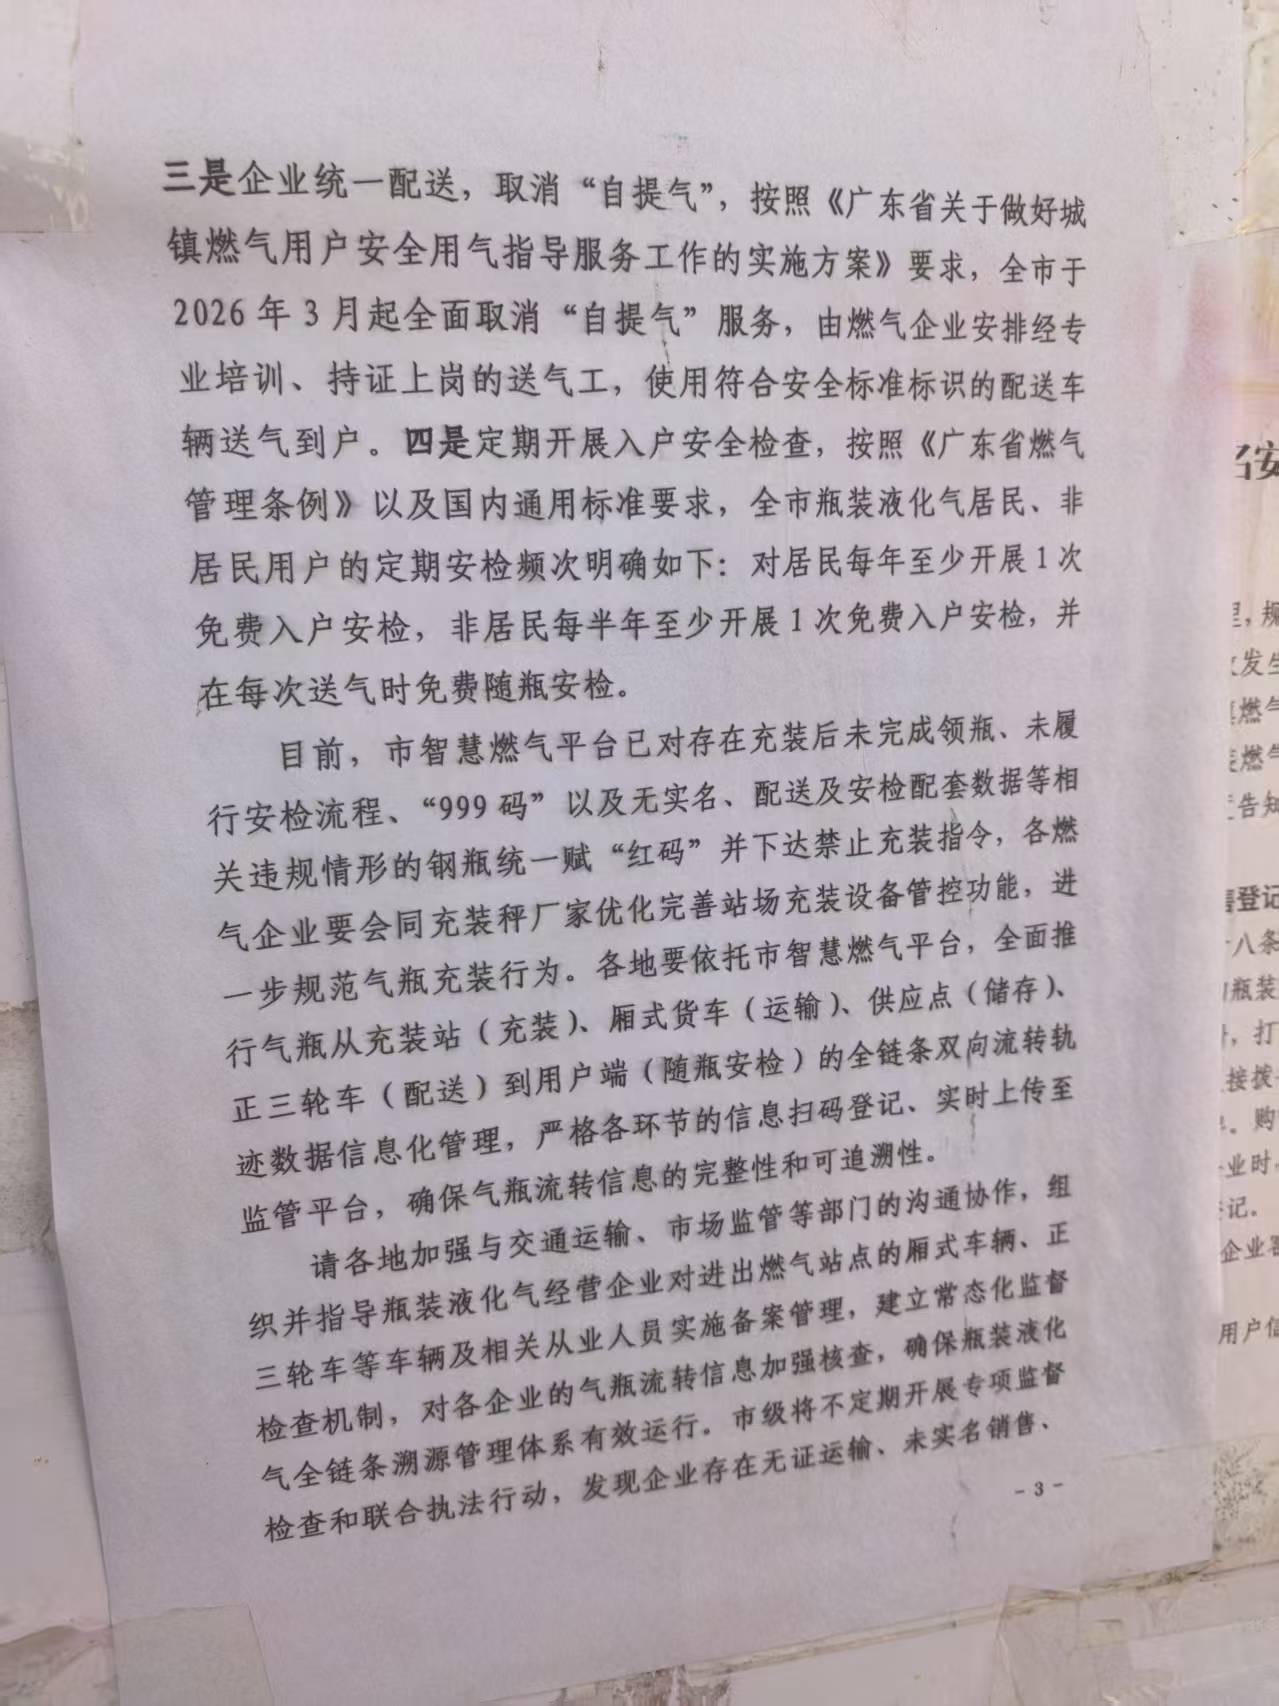 三是企业统一配送，取消“自提气”，按照《广东省关于做好城
镇燃气用户安全用气指导服务工作的实施方案》要求，全市于
2026年3月起全面取消“自提气”服务，由燃气企业安排经专
业培训、持证上岗的送气工，使用符合安全标准标识的配送车
辆送气到户。四是定期开展入户安全检查，按照《广东省燃气
管理条例》以及国内通用标准要求，全市瓶装液化气居民、非
居民用户的定期安检频次明确如下：对居民每年至少开展1次
免费入户安检，非居民每半年至少开展1次免费入户安检，并
在每次送气时免费随瓶安检。
目前，市智慧燃气平台已对存在充装后未完成领瓶、未履
行安检流程、“999码”以及无实名、配送及安检配套数据等相
关违规情形的钢瓶统一赋“红码”并下达禁止充装指令，各燃
气企业要会同充装秤厂家优化完善站场充装设备管控功能，进
一步规范气瓶充装行为。各地要依托市智慧燃气平台，全面推
行气瓶从充装站（充装）、厢式货车（运输）、供应点（储存）、
正三轮车（配送）到用户端（随瓶安检）的全链条双向流转轨
迹数据信息化管理，严格各环节的信息扫码登记、实时上传至
监管平台，确保气瓶流转信息的完整性和可追溯性。
请各地加强与交通运输、市场监管等部门的沟通协作，组
织并指导瓶装液化气经营企业对进出燃气站点的厢式车辆、正
三轮车等车辆及相关从业人员实施备案管理，建立常态化监督
检查机制，对各企业的气瓶流转信息加强核查，确保瓶装液化
气全链条溯源管理体系有效运行。市级将不定期开展专项监督
检查和联合执法行动，发现企业存在无证运输、未实名销售、
- 3 -
安
，规
发生
燃气
燃气
告知
登记
八条
瓶装
，打
接拨
。购
业时
记。
企业
用户信